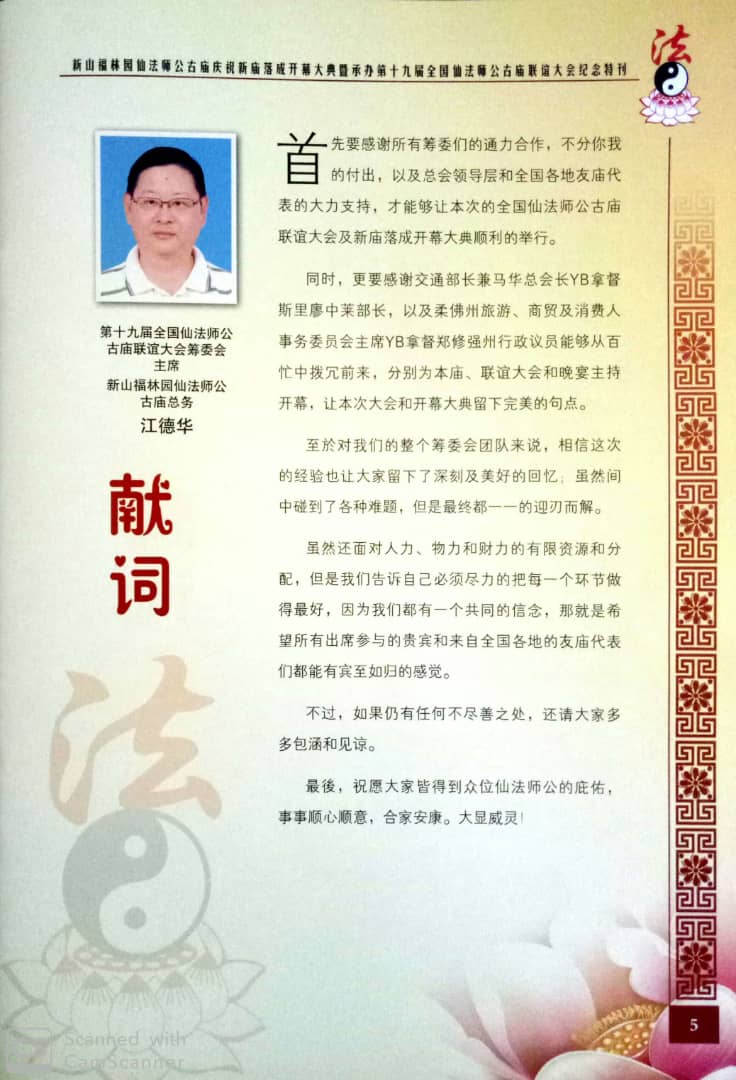 新山福林园仙法师公古庙庆祝新庙落成开幕大典暨承办第十九届全国仙法师公古庙联谊大会纪念特刊
法
第十九届全国仙法师公
古庙联谊大会筹委会
主席
新山福林园仙法师公
古庙总务
江德华
献
词
首先要感谢所有筹委们的通力合作，不分你我
的付出，以及总会领导层和全国各地友庙代
表的大力支持，才能够让本次的全国仙法师公古庙
联谊大会及新庙落成开幕大典顺利的举行。
同时，更要感谢交通部长兼马华总会长YB拿督
斯里廖中莱部长，以及柔佛州旅游、商贸及消费人
事务委员会主席YB拿督郑修强州行政议员能够从百
忙中拨冗前来，分别为本庙、联谊大会和晚宴主持
开幕，让本次大会和开幕大典留下完美的句点。
至於对我们的整个筹委会团队来说，相信这次
的经验也让大家留下了深刻及美好的回忆；虽然间
中碰到了各种难题，但是最终都一一的迎刃而解。
虽然还面对人力、物力和财力的有限资源和分
配，但是我们告诉自己必须尽力的把每一个环节做
得最好，因为我们都有一个共同的信念，那就是希
望所有出席参与的贵宾和来自全国各地的友庙代表
们都能有宾至如归的感觉。
不过，如果仍有任何不尽善之处，还请大家多
多包涵和见谅。
最後，祝愿大家皆得到众位仙法师公的庇佑，
事事顺心顺意，合家安康。大显威灵！
法
5
Scanned with
CamScanner